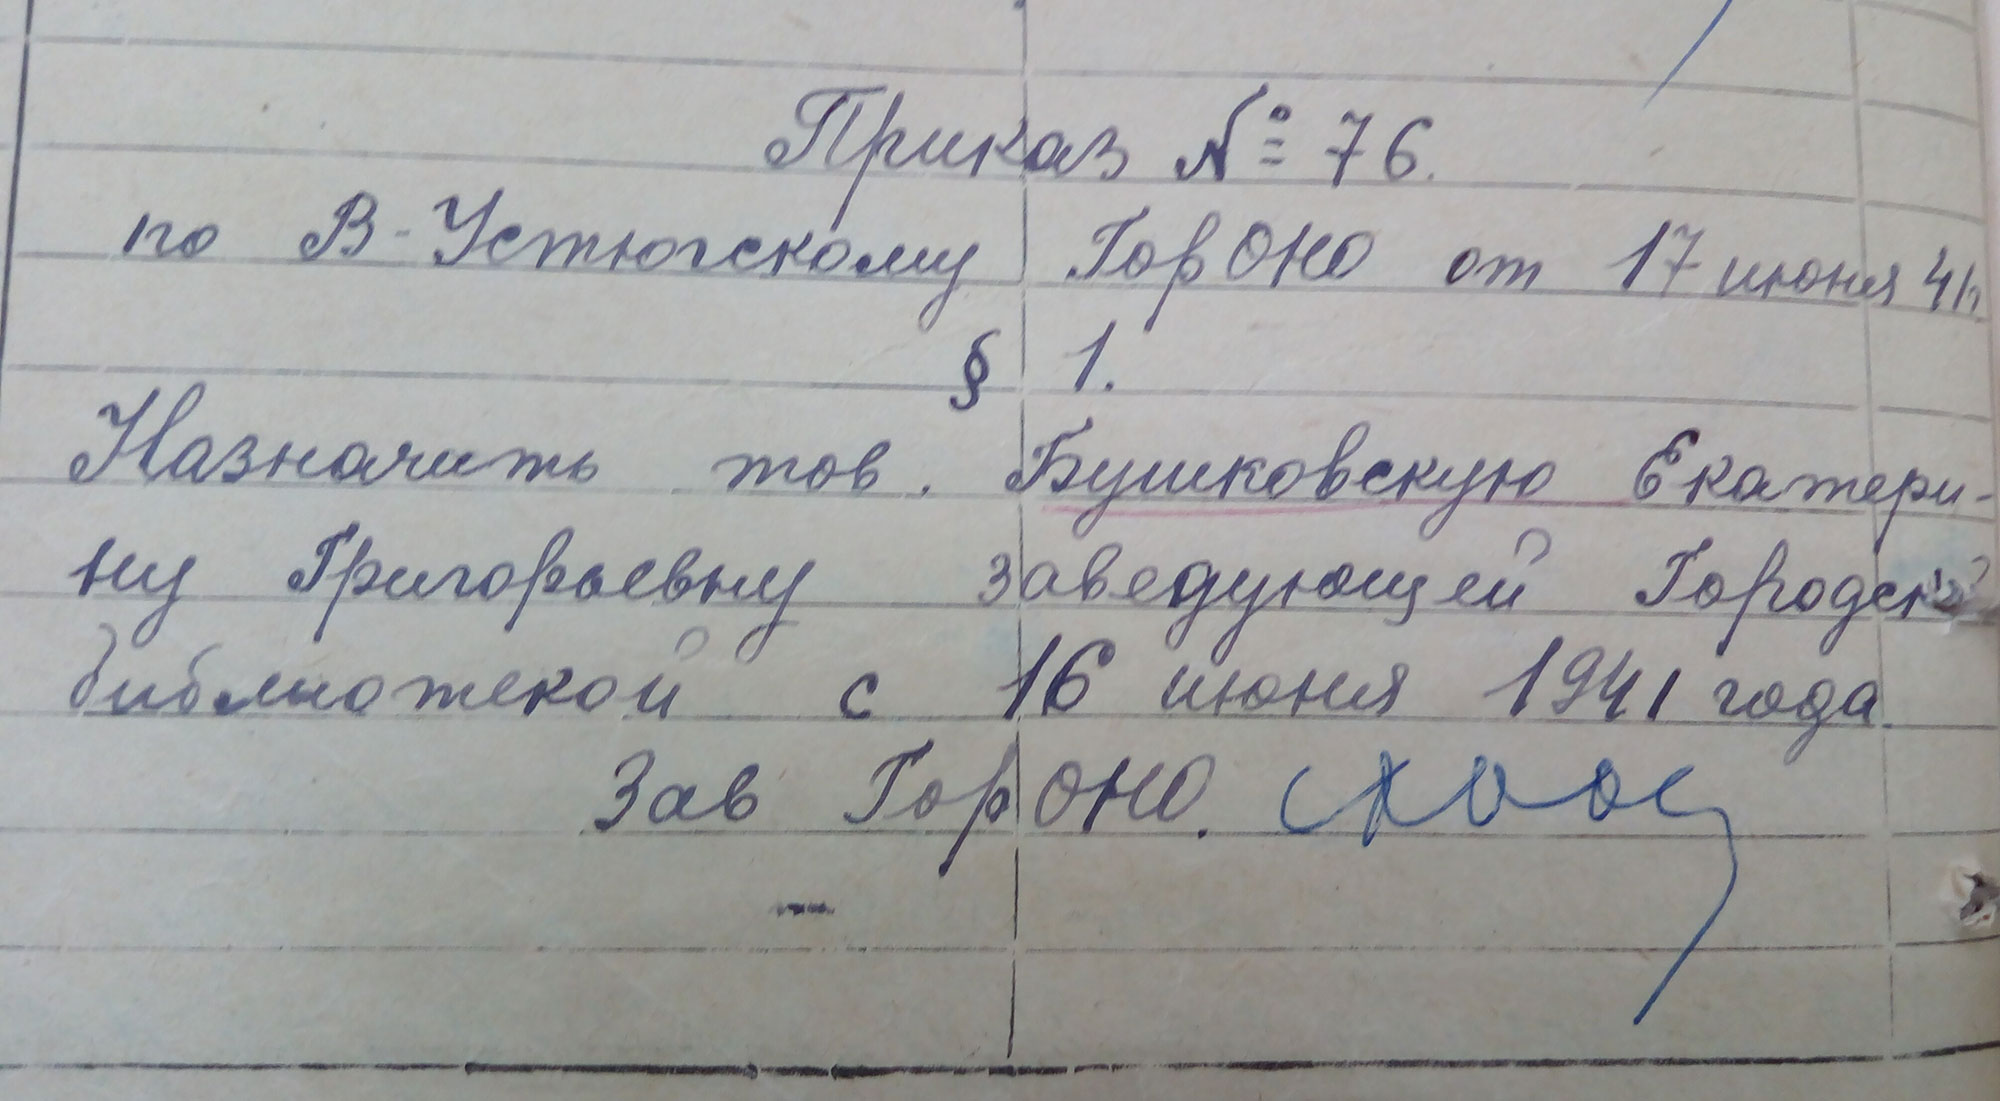 Приказ № 76.
по В-Устюгскому ГорОНО от 17 июня 41г.
§ 1.
Назначить тов. Бушковскую Екатери-
ну Григорьевну заведующей Городской
библиотекой с 16 июня 1941 года
Зав ГорОНО.